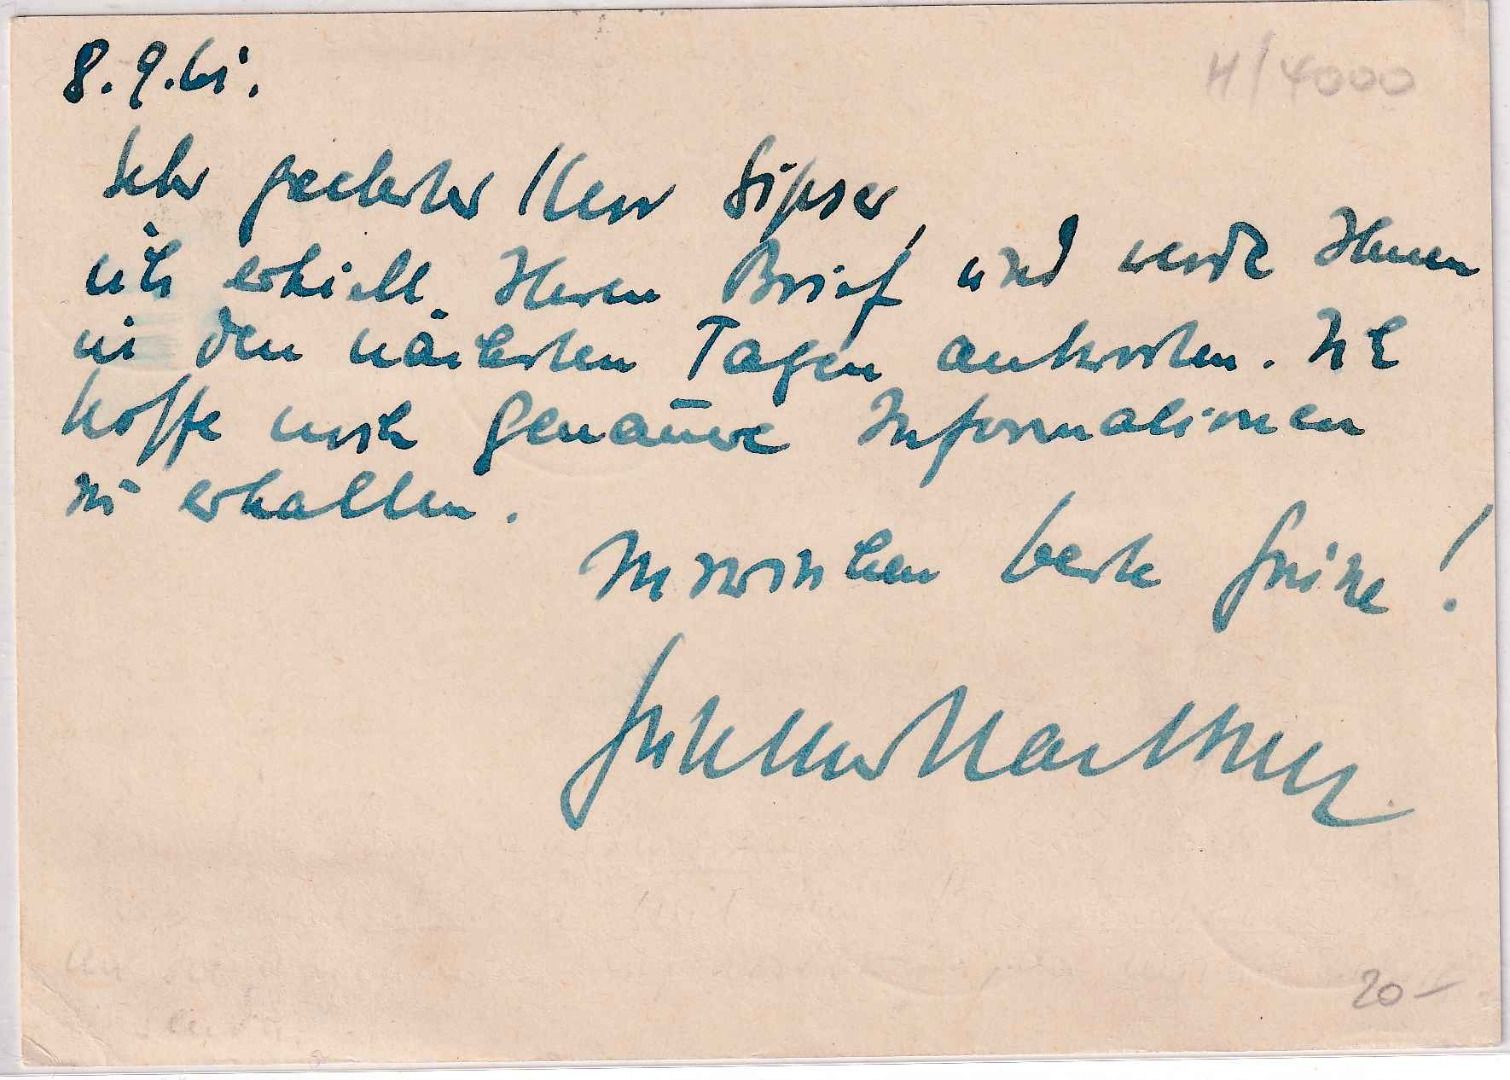 8.9.61.
H/4000
Sehr geehrter Herr Sipser,
ich erhielt Ihren Brief und werde Ihnen
in den nächsten Tagen antworten. Ich
hoffe noch genauere Informationen
zu erhalten.
Inzwischen beste Grüße!
20-